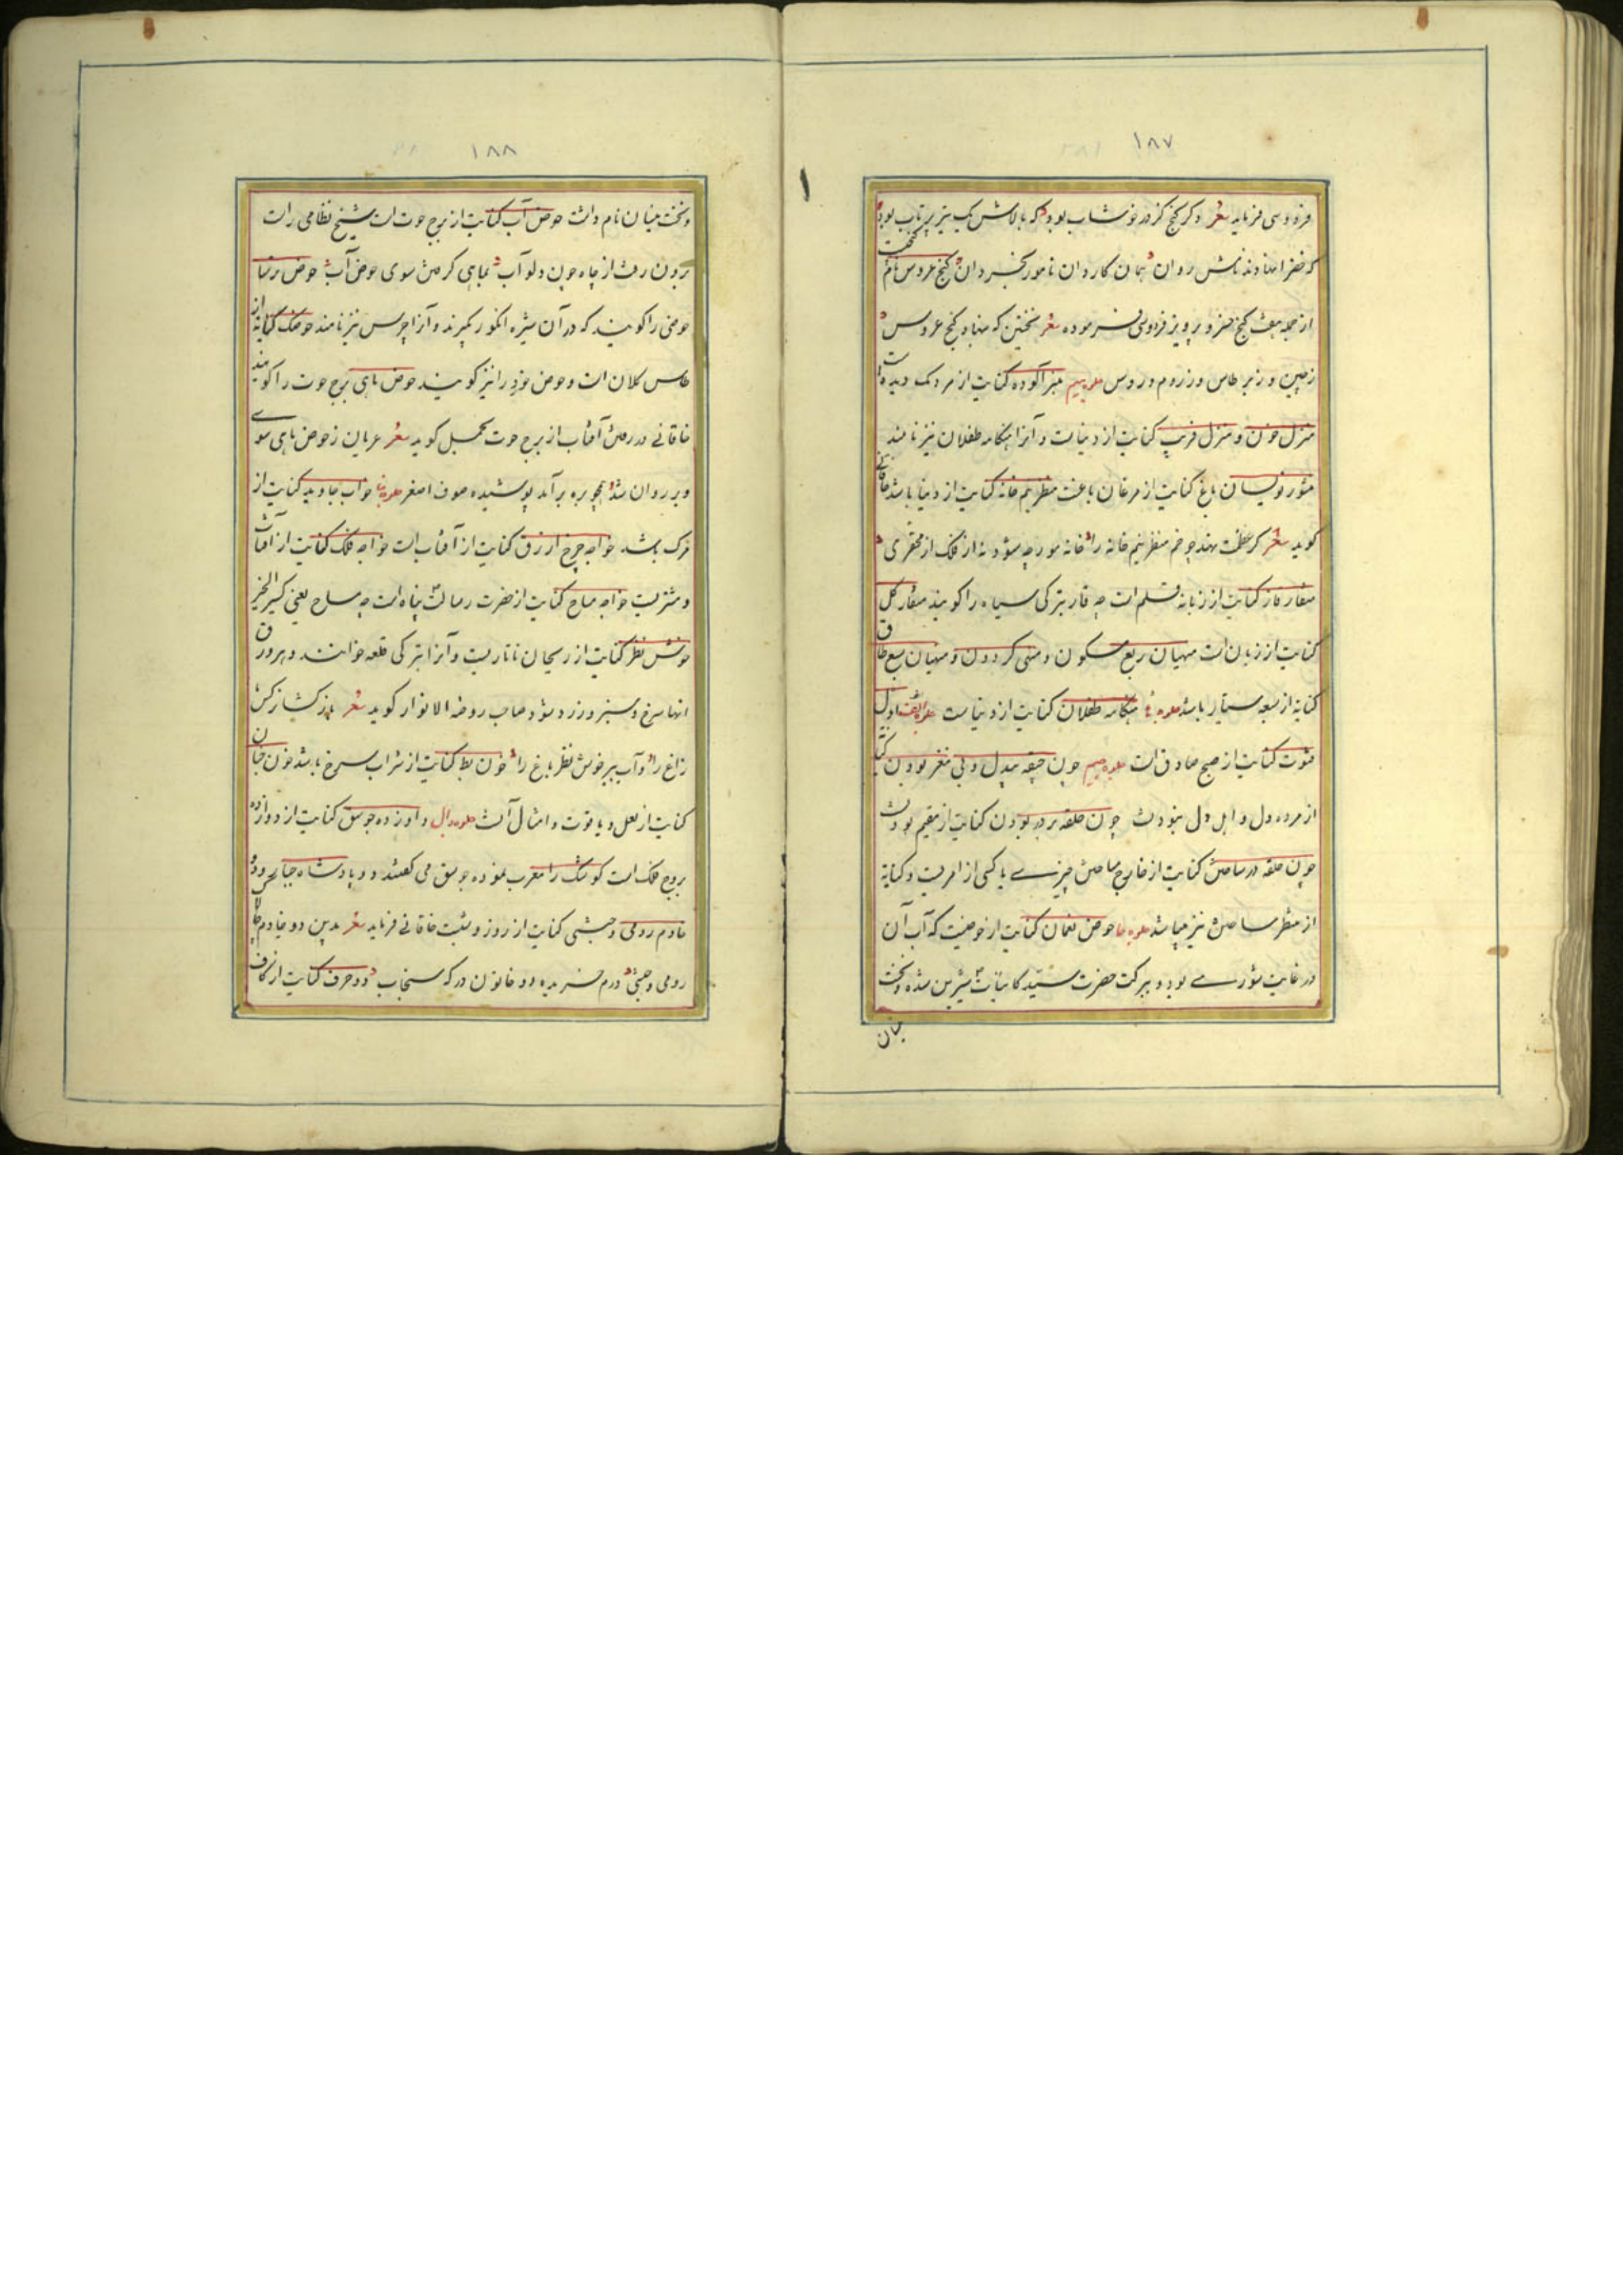 ۱۸۷
فردوسی فرماید شعر دگر گنج کز در خوشاب بود که بالاش یک تیر پرتاب بود
که خضرا نهادند نامش ردان همان کاردان نامور بخردان گنج عروس نام
از جمله هفت گنج خسرو پرویز فردوسی فرموده شعر نخستین که بنهاد گنج عروس
ز چین و ز برطاس وز روم و روس جلوه میم کنایت از مردمک دیده
منزل خون و منزل فریب کنایت از دنیاست و آنرا هنگامه طفلان نیز نامند
باغ کنایت از مرغان باغست منظر نیم خانه کنایت از دنیا باشد خاقانی
گوید شعر خانه را خانه مورچه شود نه از فلک از محقری
منقار قار کنایت از زبانه قلم است چه قار بترکی سیاه را گویند منقار گل
کنایت از زبان است ربع مسکون و منهی گردون و منهیان سبع طاق
کنایه از سبعه سیاره باشد جلوه ها هنگامه طفلان کنایت از دنیاست
کنایت از صبح صادق است جلوه جیم چون بیدل و بی مغز بودن
از مرده دل و اهل دل نبودنست چون حلقه بر در بودن کنایت از مقیم بودنست
چون حلقه در ساختن کنایت از خارج ساختن چیزی یا کسی از امریست و کنایه
از منظر ساختن نیز میباشد جلوه حا حوض نعمان کنایت از حوضیست که آب آن
در غایت شوری بود و ببرکت حضرت سید کاینات شیرین شده
۱۸۸
نام داشت حوض آب کنایت از برج حوت است شیخ نظامی راست
برون رفت از چاه چون دلو آب بماهی گرفتن سوی حوض آب حوض
حوضی را گویند که در آن شیره انگور گیرند و آنرا چرس نیز نامند حوضک کنایه از
طاس کلان است و حوض خرد را نیز گویند حوض ماهی برج حوت را گویند
خاقانی در رفتن آفتاب از برج حوت بحمل گوید شعر عریان ز حوض ماهی سوی
بره روان شد همچو بره برآمد پوشیده صوف اصفر جلوه خا خواب جاوید کنایت از
مرگ باشد خواجه چرخ ازرق کنایت از آفتاب است خواجه فلک کنایت از آفتاب
و مشتریست خواجه مساح کنایت از حضرت رسالت پناه است چه مساح یعنی کثیر الخیر
خوش نظر کنایت از ریحان تاتاریست و آنرا بترکی قلعه خوانند و هر ورق
آنها سرخ و سبز و زرد شود صاحب روضه الانوار گوید شعر
زاغ را و آب خوش نظر باغ را خون بط کنایت از شراب سرخ باشد خون
کنایت از لعل و یاقوت و امثال آنست جلوه دال دوازده جوسق کنایت از دوازده
بروج فلک است کوشک را معرب نموده جوسق می گفتند دو پادشاه
خادم رومی و حبشی کنایت از روز و شبست خاقانی فرماید شعر بدین دو خادم
رومی و حبشی درم خریده دو خاتون در که سنجاب دو حرف کنایت از کاف